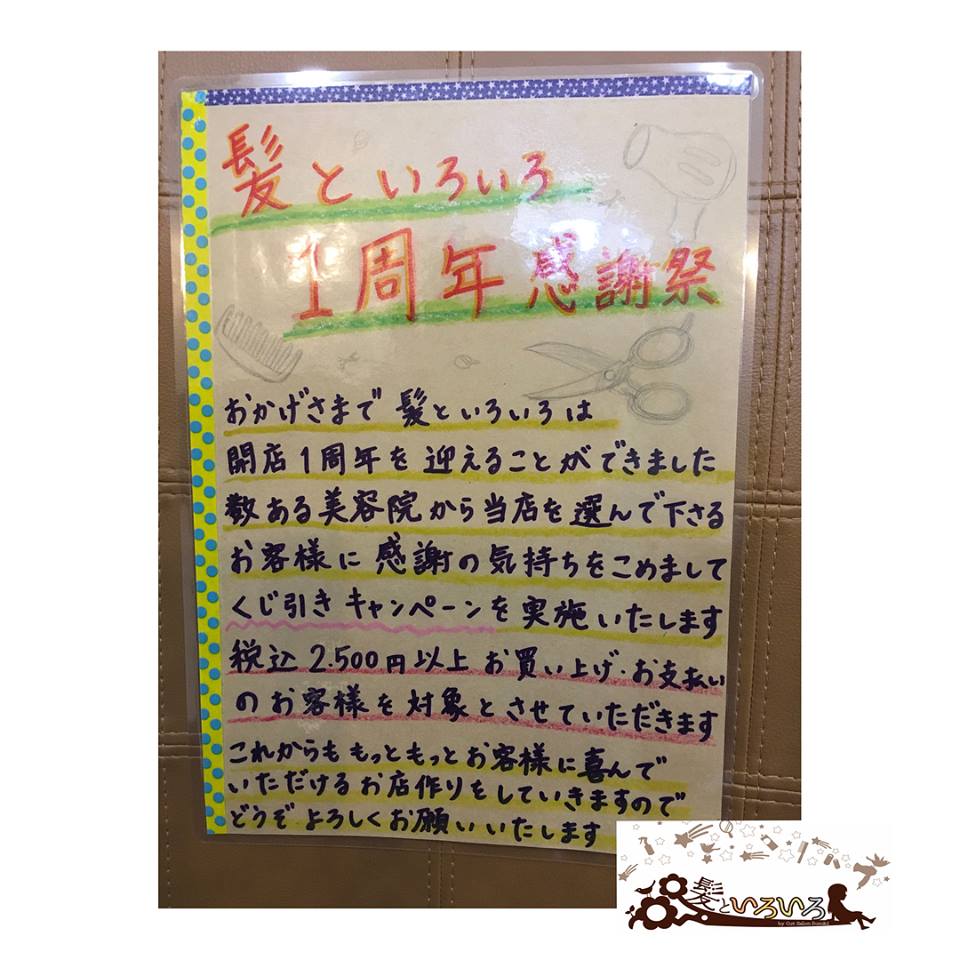 髪といろいろ
1周年感謝祭
おかげさまで 髪といろいろは
開店1周年を迎えることができました
数ある美容院から当店を選んで下さる
お客様に感謝の気持ちをこめまして
くじ引きキャンペーンを実施いたします
税込2.500円以上お買い上げ・お支払い
のお客様を対象とさせていただきます
これからももっともっとお客様に喜んで
いただけるお店作りをしていきますので
どうぞよろしくお願いいたします
髪といろいろ